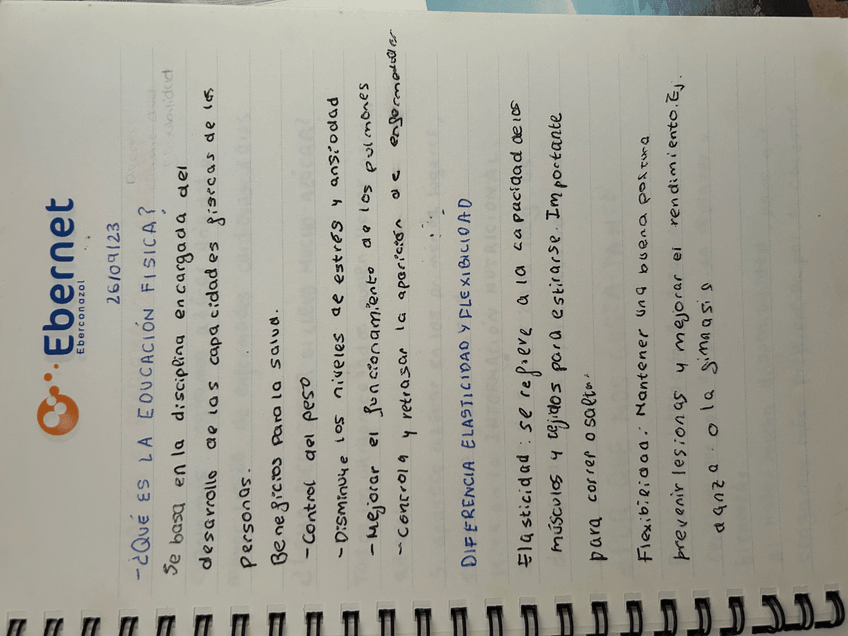 Ebernet
Eberconazol
26/09/23
-¿QUÉ ES LA EDUCACIÓN FISICA?
Se basa en la disciplina encargada del
desarrollo de las capacidades fisecas de las
personas.
Beneficios para la salud.
-Control del peso
-Disminuye los niveles de estrés y ansiedad
-Mejorar el funcionamiento de los pulmones
-Controla y retrasar la aparición de enfermedades
DIFERENCIA ELASTICIDAD Y FLEXIBICIDAD
Elasticidad: se refiere a la capacidad de los
músculos y tejidos para estirarse. Importante
para correr o saltar.
Flexibilidad: Mantener una buena postura
prevenir lesionas y mejorar el rendimiento. Ej.
danza o la gimnasis